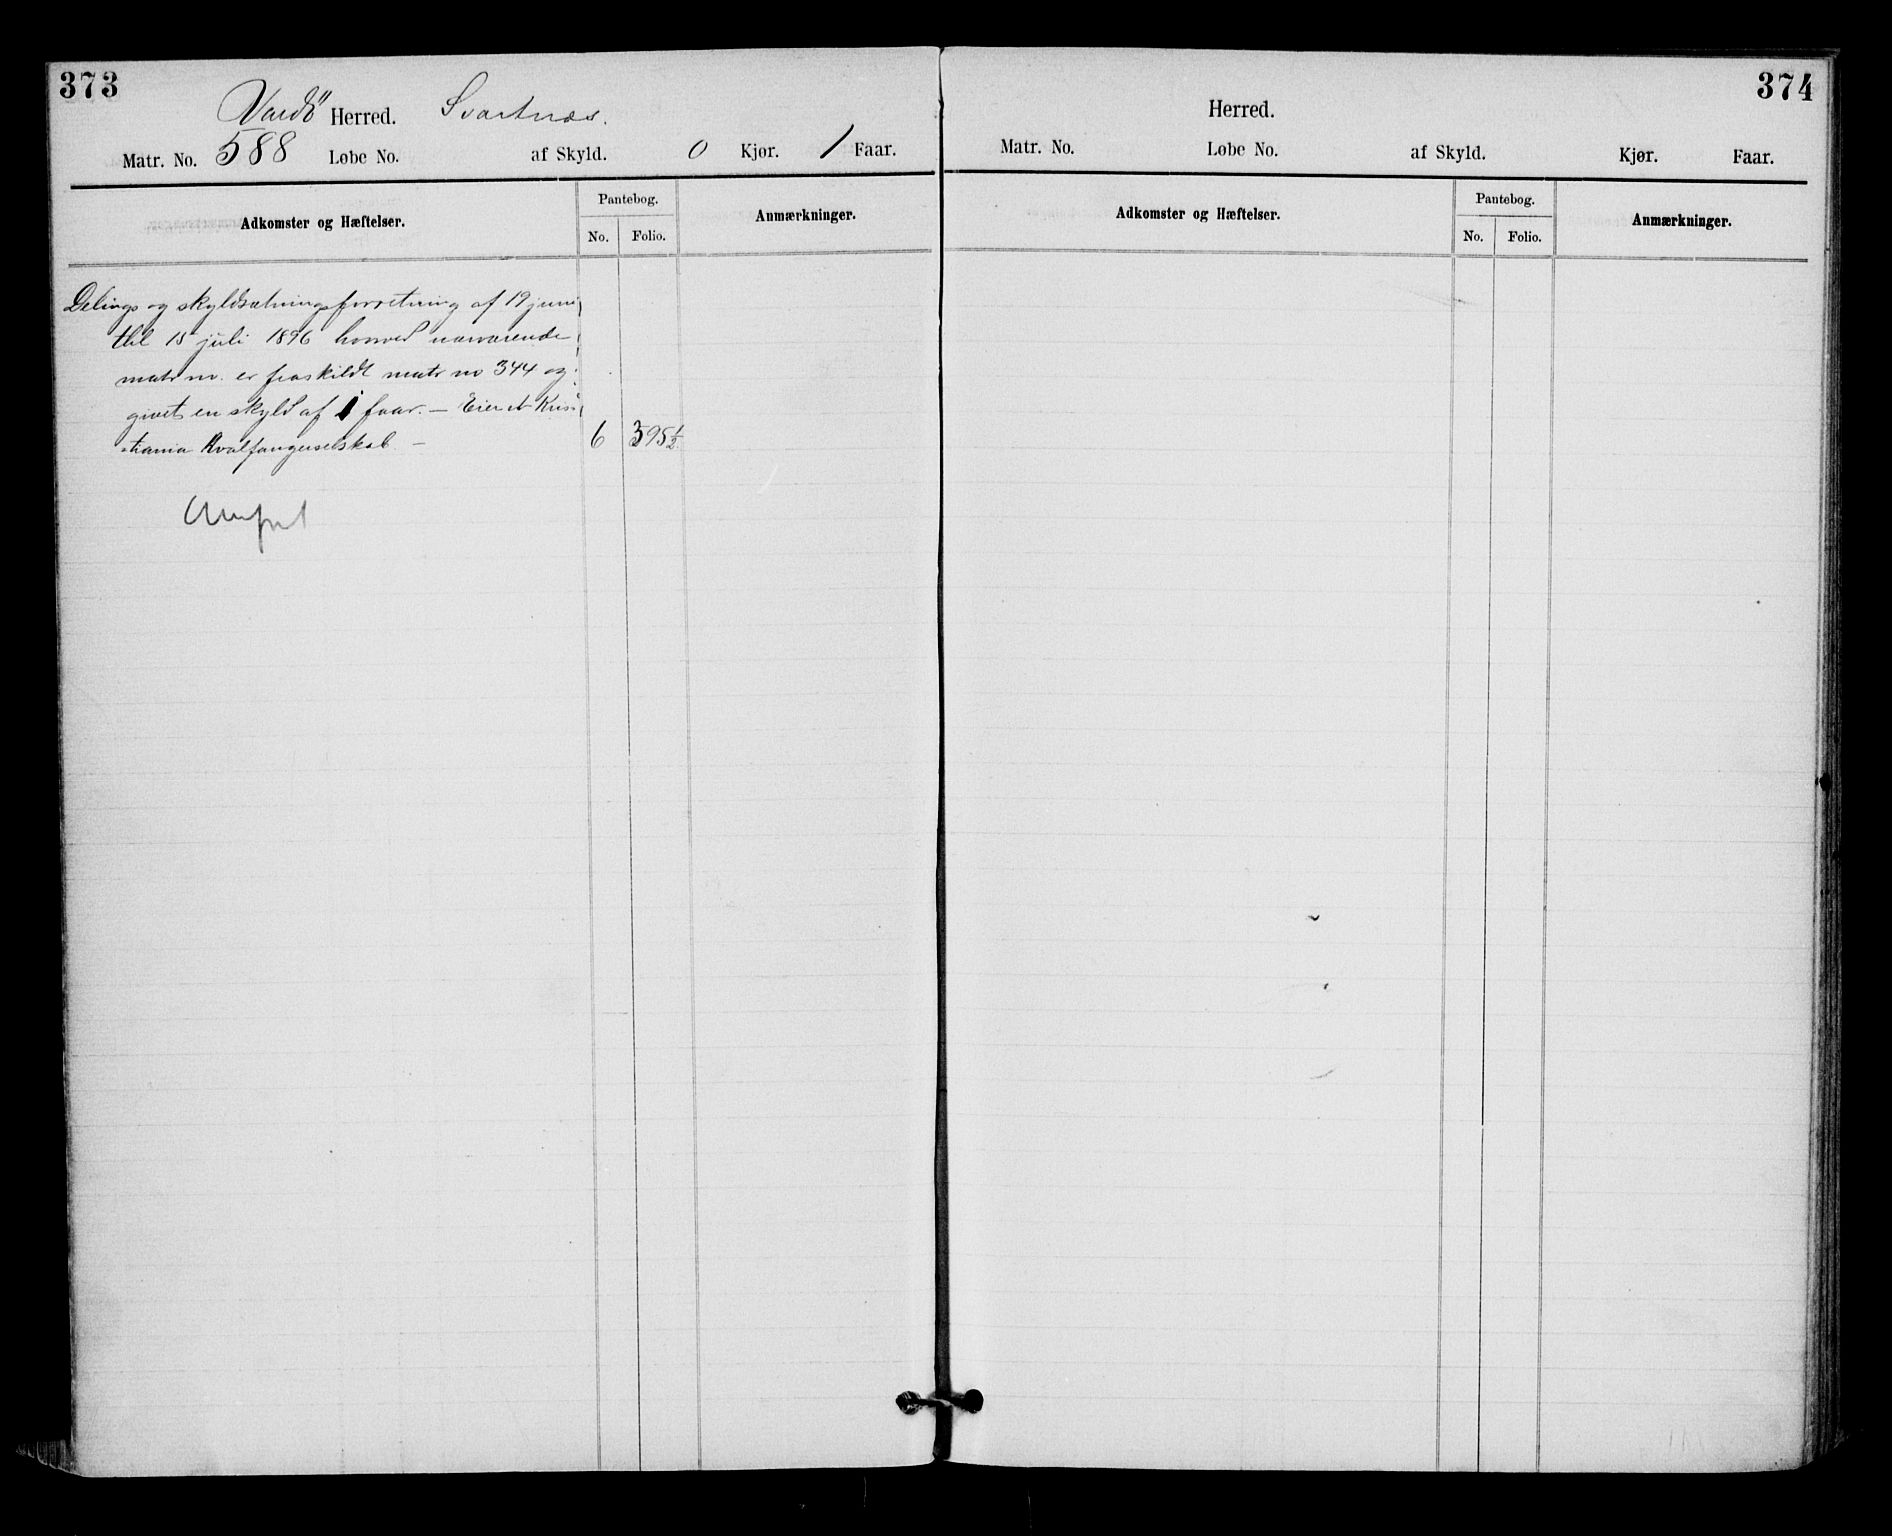 373
Vardö Herred. Svartnæs.
Matr. No. 588 Løbe No. af Skyld. 0 Kjør. 1 Faar.
Adkomster og Hæftelser.
Pantebog.
No. Folio.
Anmærkninger.
Delings og skyldsætningsforretning af 19 juni
til 15 juli 1896 hvorved nærværende
matr no. er fraskildt matr no 344 og
givet en skyld af 1 faar. — Eier er Kris-
tiania Hvalfangerselskab. — 6 395 1/2.
374
Herred.
Matr. No. Løbe No. af Skyld. Kjør. Faar.
Adkomster og Hæftelser.
Pantebog.
No. Folio.
Anmærkninger.